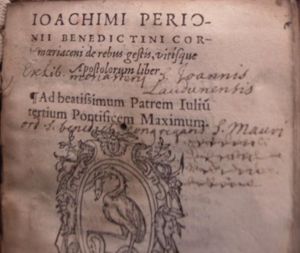 IOACHIMI PERIO-
NII BENEDICTINI COR-
mœriaceni de rebus gestis, vitisque
Apostolorum liber
S. Joannis
Laudunensis
¶Ad beatissimum Patrem Iuliū
tertium Pontificem Maximum.
ord. S. congreg S. Mauri